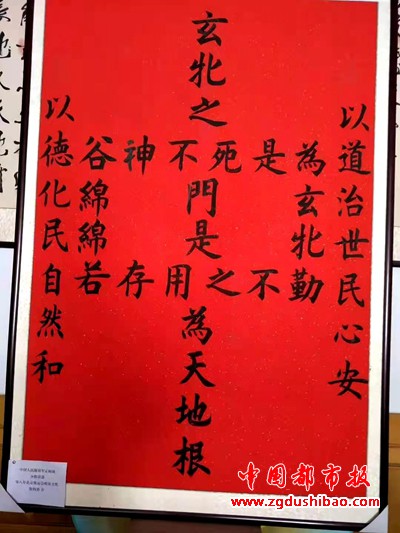 以道治世民心安
玄牝之
谷神不死是為
玄牝
門是
綿綿
若存用之不勤
為天地根
以德化民自然和
中国都市报
www.zgdushibao.com